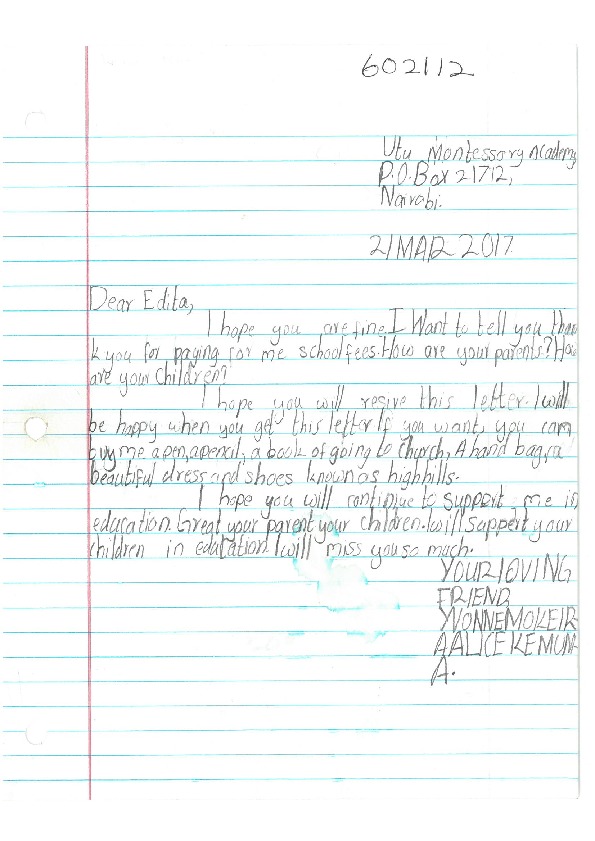 602112
Utu Montessory Academy
P.O.Box 21712,
Nairobi.
21 MAR 2017.
Dear Edita,
I hope you are fine. I Want to tell you than
k you for paying for me school fees. How are your parents? How
are your children?
I hope you will resive this letter. I will
be happy when you get this letter If you want, you can
buy me a pen, a pencil, a book of going to church, A hand bag, a
beautiful dress and shoes known as highhills.
I hope you will continue to support me in
education. Great your parent your children. I will support your
children in education. I will miss you so much.
YOUR LOVING
FRIEND
YVONNE MOKEIR
A ALICE KEMUN
A.